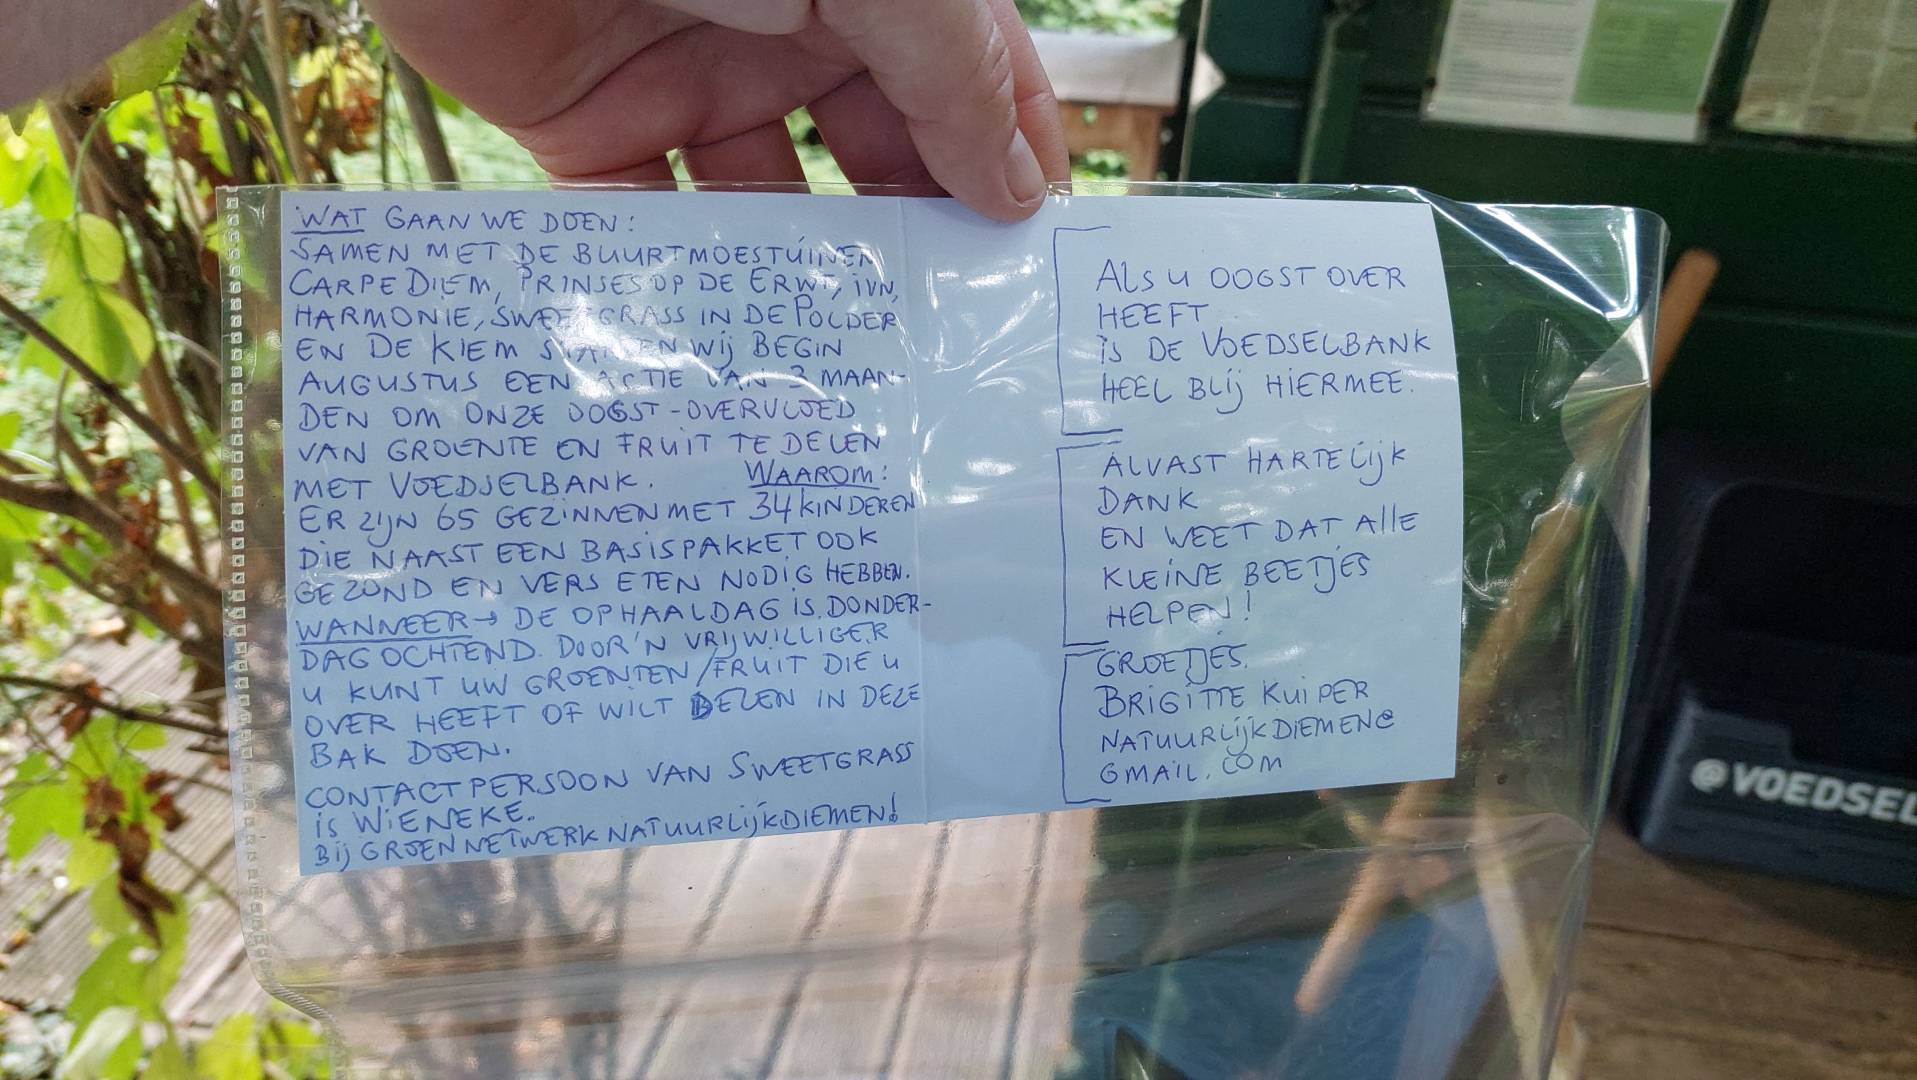 WAT GAAN WE DOEN:
SAMEN MET DE BUURTMOESTUINEN
CARPE DIEM, PRINSES OP DE ERWT, IVN,
HARMONIE, SWEETGRASS IN DE POLDER
EN DE KIEM STARTEN WIJ BEGIN
AUGUSTUS EEN ACTIE VAN 3 MAAN-
DEN OM ONZE OOGST-OVERVLOED
VAN GROENTE EN FRUIT TE DELEN
MET VOEDSELBANK. WAAROM:
ER ZIJN 65 GEZINNEN MET 34 KINDEREN
DIE NAAST EEN BASISPAKKET OOK
GEZOND EN VERS ETEN NODIG HEBBEN.
WANNEER → DE OPHAALDAG IS DONDER-
DAG OCHTEND. DOOR 'N VRIJWILLIGER
U KUNT UW GROENTEN/FRUIT DIE U
OVER HEEFT OF WILT DELEN IN DEZE
BAK DOEN.
CONTACTPERSOON VAN SWEETGRASS
IS WIENEKE.
BIJ GROEN NETWERK NATUURLIJKDIEMEN!
ALS U OOGST OVER
HEEFT
IS DE VOEDSELBANK
HEEL BLIJ HIERMEE.
ALVAST HARTELIJK
DANK
EN WEET DAT ALLE
KLEINE BEETJES
HELPEN!
GROETJES.
BRIGITTE KUIPER
NATUURLIJKDIEMEN@
GMAIL.COM
@VOEDSEL